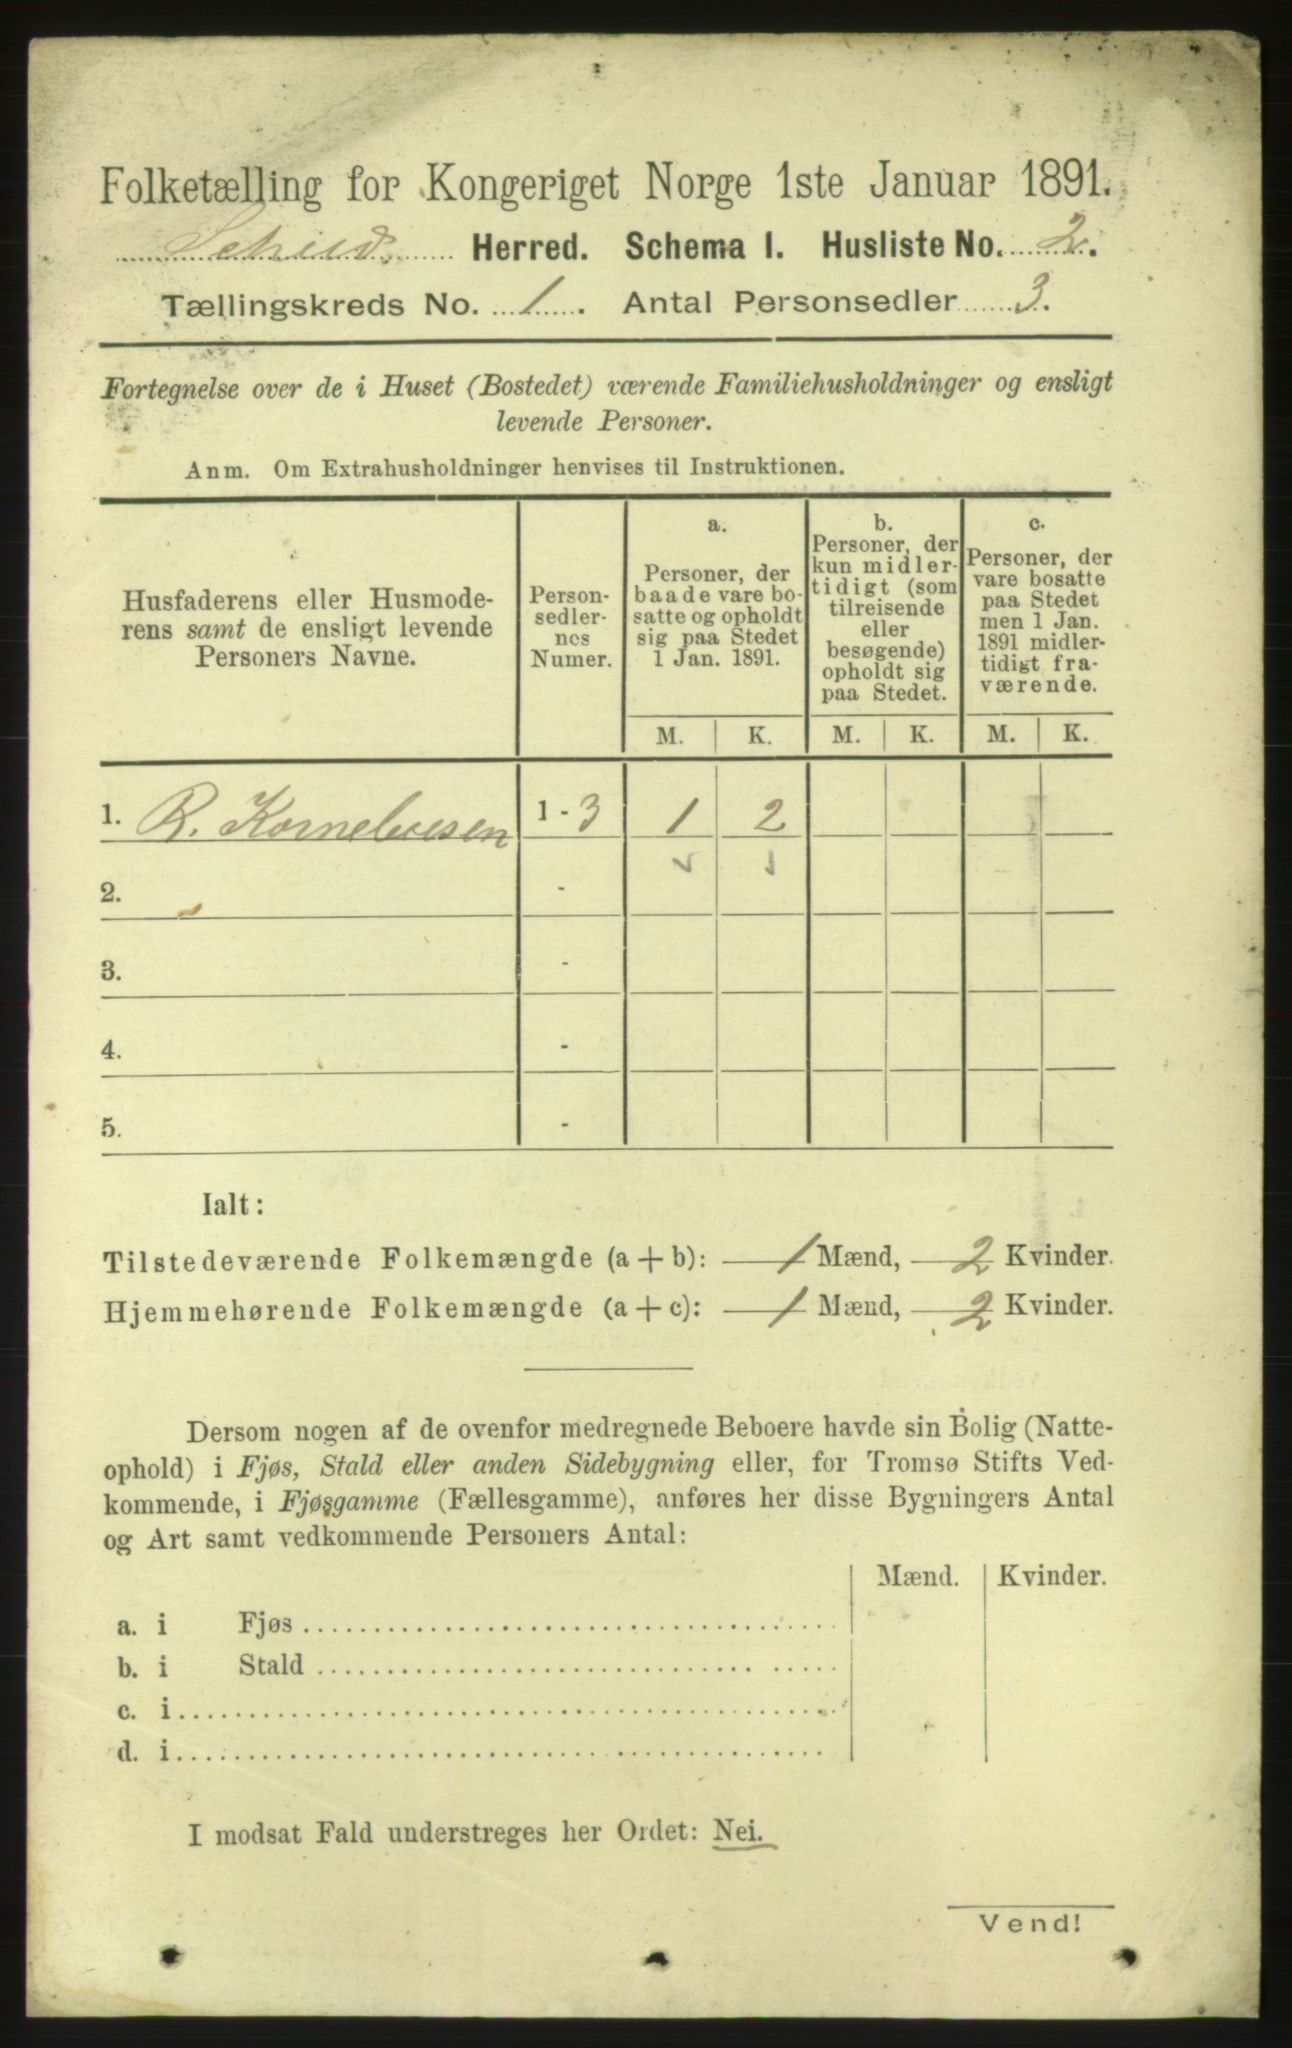 Folketælling for Kongeriget Norge 1ste Januar 1891.
Schild Herred. Schema I. Husliste No. 2.
Tællingskreds No. 1. Antal Personsedler 3.
Fortegnelse over de i Huset (Bostedet) værende Familiehusholdninger og ensligt
levende Personer.
Anm. Om Extrahusholdninger henvises til Instruktionen.
Husfaderens eller Husmode-
rens samt de ensligt levende
Personers Navne.
Person-
sedler-
nes
Numer.
a.
Personer, der
baade vare bo-
satte og opholdt
sig paa Stedet
1 Jan. 1891.
b.
Personer, der
kun midler-
tidigt (som
tilreisende
eller
besøgende)
opholdt sig
paa Stedet.
c.
Personer, der
vare bosatte
paa Stedet
men 1 Jan.
1891 midler-
tidigt fra-
værende.
M. K. M. K. M. K.
1. R. Korneliussen 1 - 3 1 2
2. -
3. -
4. -
5. -
Ialt:
Tilstedeværende Folkemængde (a + b): 1 Mænd, 2 Kvinder.
Hjemmehørende Folkemængde (a + c): 1 Mænd, 2 Kvinder.
Dersom nogen af de ovenfor medregnede Beboere havde sin Bolig (Natte-
ophold) i Fjøs, Stald eller anden Sidebygning eller, for Tromsø Stifts Ved-
kommende, i Fjøsgamme (Fællesgamme), anføres her disse Bygningers Antal
og Art samt vedkommende Personers Antal:
Mænd. Kvinder.
a. i Fjøs
b. i Stald
c. i
d. i
I modsat Fald understreges her Ordet: Nei.
Vend!